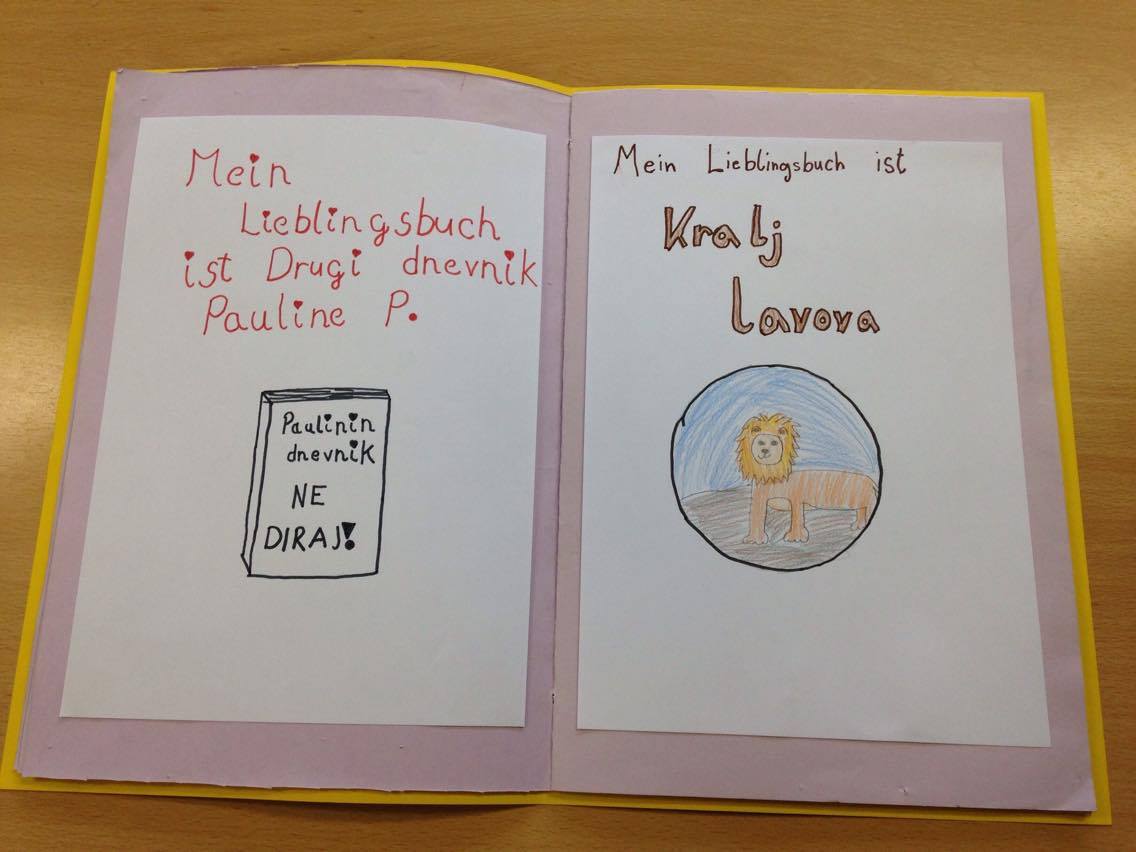 Mein
Lieblingsbuch
ist Drugi dnevnik
Pauline P.
Paulinin
dnevnik
NE
DIRAJ!
Mein Lieblingsbuch ist
Kralj
lavova